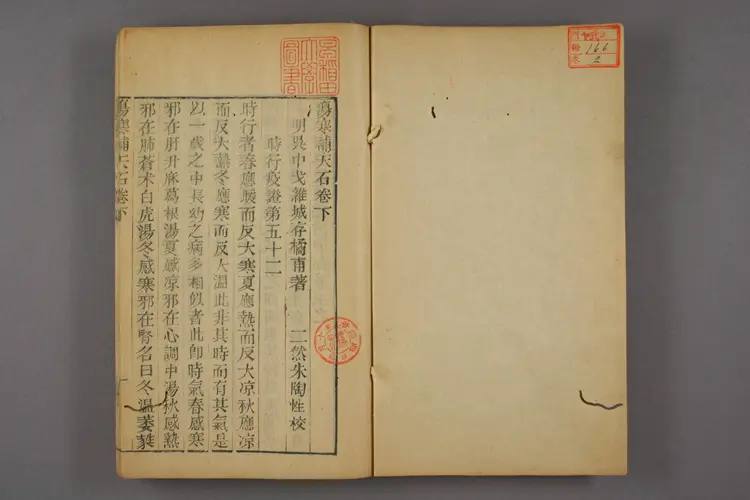 傷寒補天石卷下
明吳中戈維城存橘甫著 二然朱陶性校
時行疫證第五十二
時行者春應暖而反大寒夏應熱而反大凉秋應凉
而反大熱冬應寒而反大溫此非其時而有其氣是
以一歲之中長幼之病多相似者此卽時氣春感寒
邪在肝升麻葛根湯夏感凉邪在心調中湯秋感熱
邪在肺蒼术白虎湯冬感寒邪在腎名曰冬溫葳蕤
傷寒補天石卷下
一
早稻田大學圖書
166
2